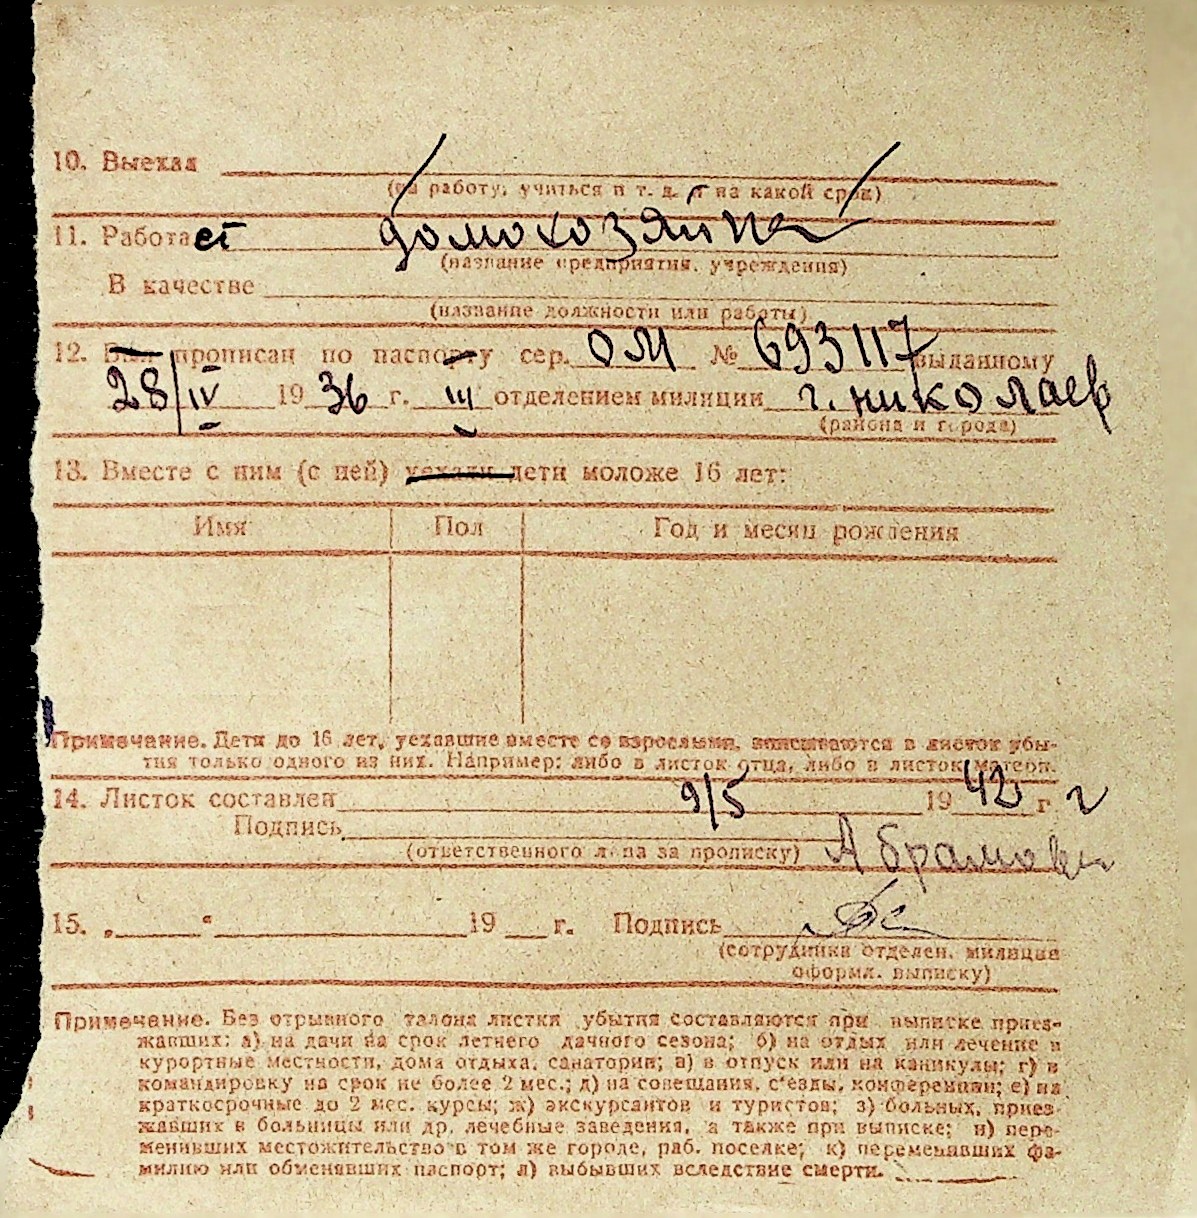 10. Выехал
(на работу, учиться и т. д. и на какой срок)
11. Работает домохозяйка
(название предприятия, учреждения)
В качестве
(название должности или работы)
12. Был прописан по паспорту сер. ОМ № 693117 выданному
28/IV 1936 г. III отделением милиции г. николаев
(района и города)
13. Вместе с ним (с ней) уехали дети моложе 16 лет:
Имя Пол Год и месяц рождения
Примечание. Дети до 16 лет, уехавшие вместе со взрослыми, вписываются в листок убы-
тия только одного из них. Например: либо в листок отца, либо в листок матери.
14. Листок составлен 9/5 1942 г г
Подпись
(ответственного лица за прописку)
15. „ “ 19 г. Подпись
(сотрудника отделен. милиции
оформл. выписку)
Примечание. Без отрывного талона листки убытия составляются при выписке приез-
жавших: а) на дачи на срок летнего дачного сезона; б) на отдых или лечение в
курортные местности, дома отдыха, санатории; в) в отпуск или на каникулы; г) в
командировку на срок не более 2 мес.; д) на совещания, с'езды, конференции; е) на
краткосрочные до 2 мес. курсы; ж) экскурсантов и туристов; з) больных, приез-
жавших в больницы или др. лечебные заведения, а также при выписке; и) пере-
менивших местожительство в том же городе, раб. поселке; к) переменивших фа-
милию или обменявших паспорт; л) выбывших вследствие смерти.